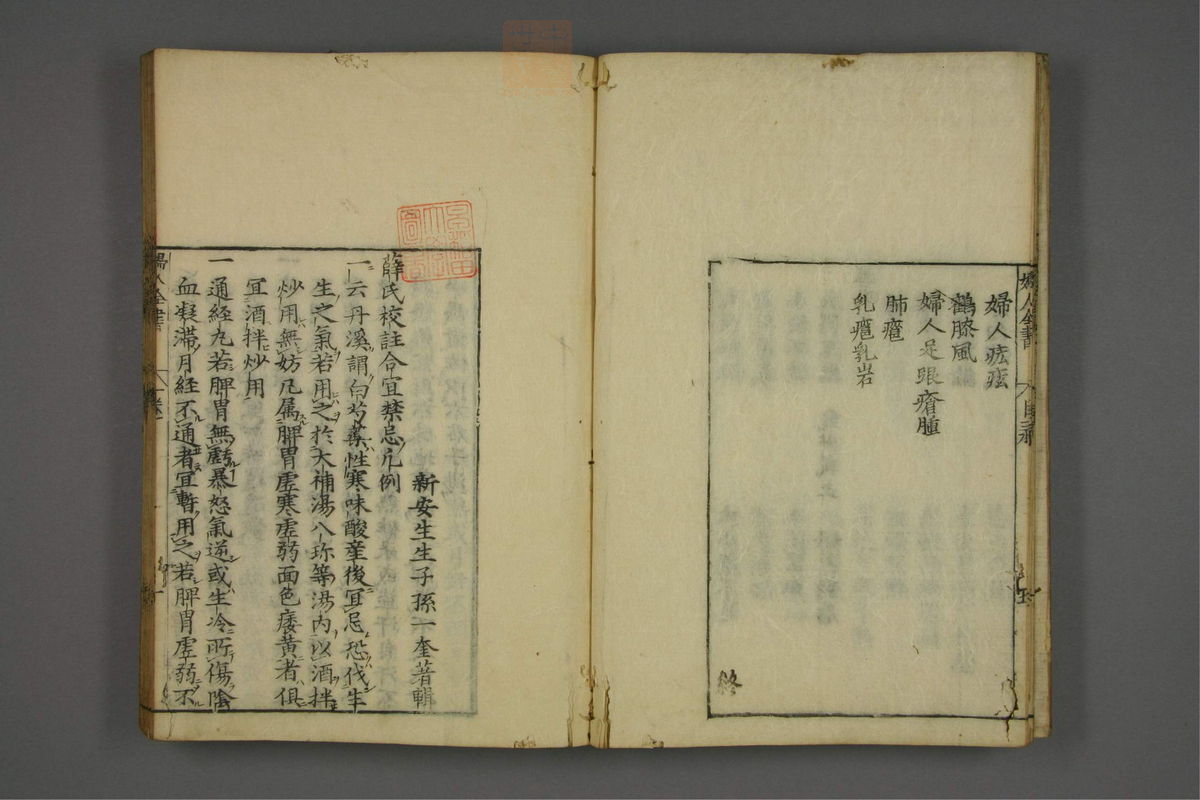 婦人痃痃
鶴膝風
婦人足跟瘡腫
肺癰
乳癰乳岩
終
新安生生子孫一奎著輯
薛氏校註合宜禁忌凡例
一云丹溪謂白芍藥性寒味酸產後冝忌恐伐生
生之氣若用之於大補湯八珍等湯内以酒拌
炒用無妨凡属脾胃虛寒虛弱面色痿黄者俱
冝酒拌炒用
一通經丸若脾胃無虧暴怒氣逆或生冷所傷陰
血凝滯月經不通者冝暫用之若脾胃虛弱不
婦人全書